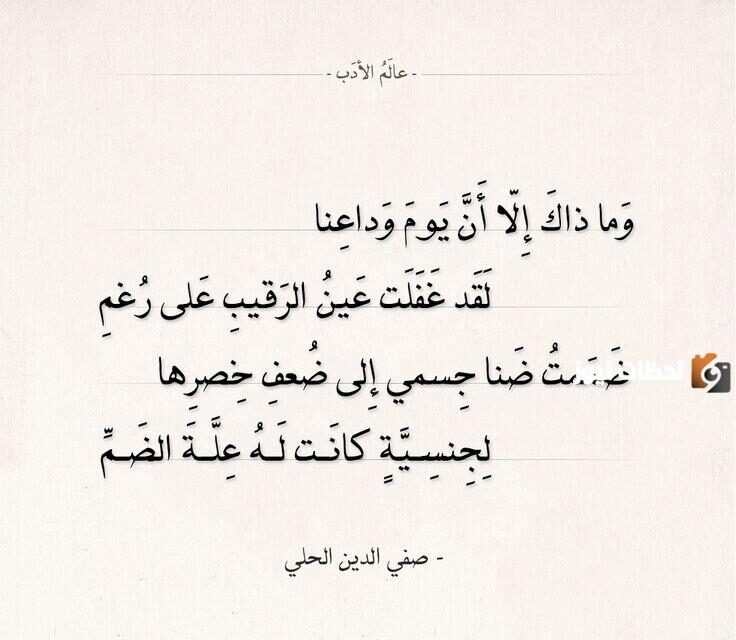 - عالَمُ الأدَب -
وَما ذاكَ إِلّا أَنَّ يَومَ وَداعِنا
لَقَد غَفَلَت عَينُ الرَقيبِ عَلى رُغمِ
ضَمَمتُ ضَنا جِسمي إِلى ضُعفِ خِصرِها
لحظات نيوز
لِجِنسِـيَّةٍ كانَـت لَـهُ عِلَّـةَ الضَـمِّ
- صفي الدين الحلي